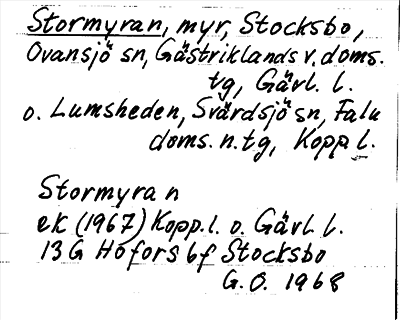 Stormyran, myr, Stocksbo,
Ovansjö sn, Gästriklands v. doms.
tg, Gävl. l.
o. Lumsheden, Svärdsjö sn, Falu
doms. n. tg, Kopp l.
Stormyran
ek (1967) Kopp. l. o. Gävl. l.
13 G Hofors bf Stocksbo
G. O. 1968